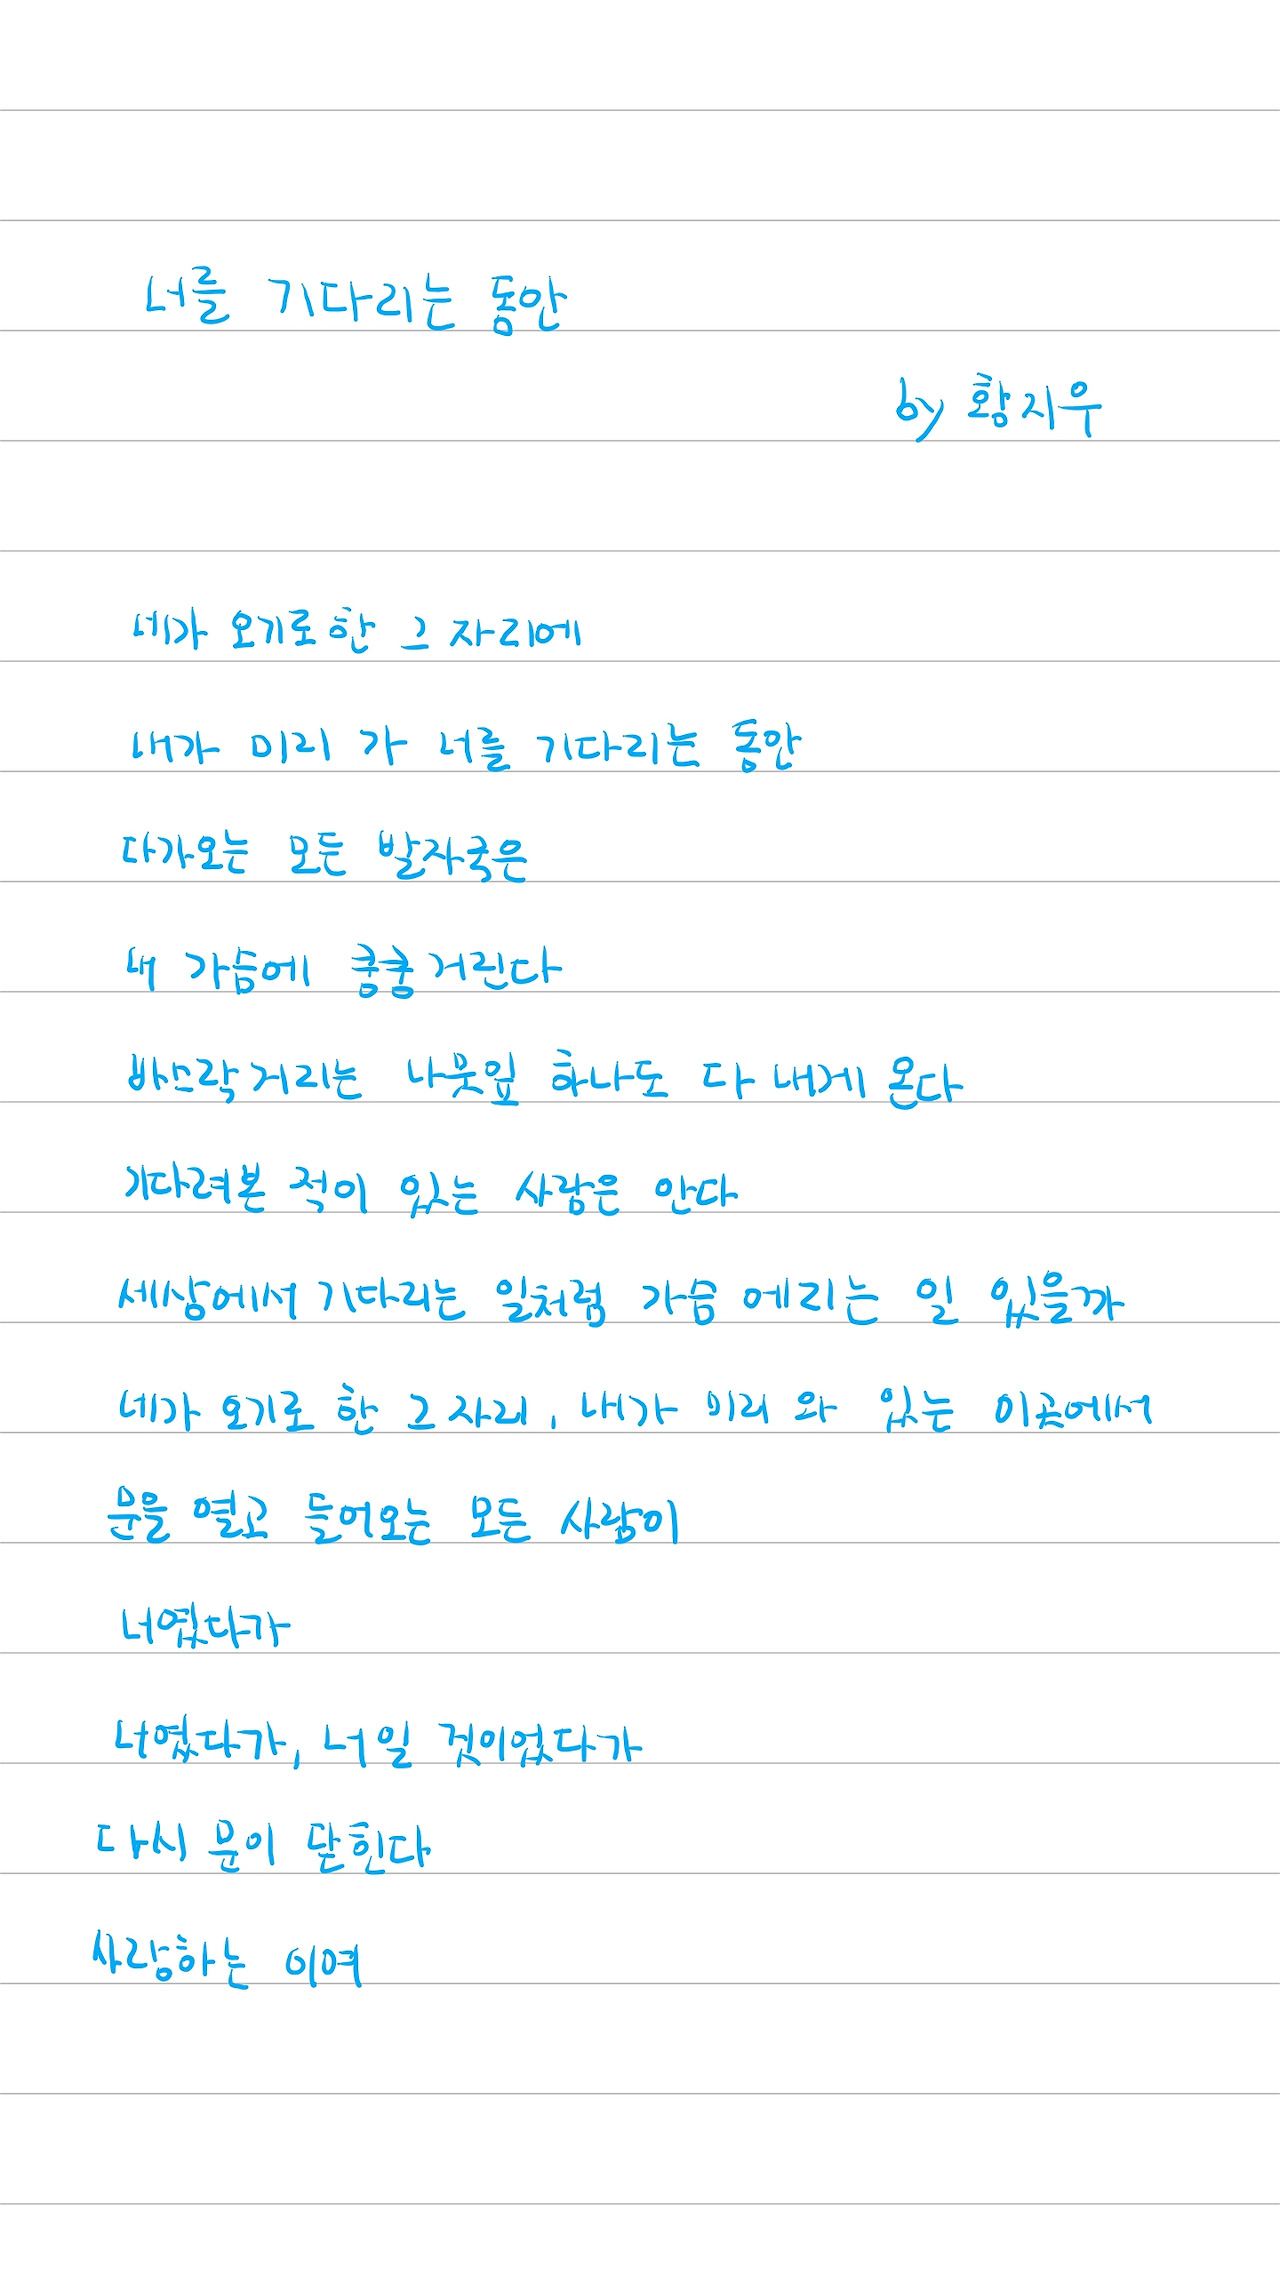 너를 기다리는 동안
by 황지우
네가 오기로 한 그 자리에
내가 미리 가 너를 기다리는 동안
다가오는 모든 발자국은
내 가슴에 쿵쿵거린다
바스락거리는 나뭇잎 하나도 다 내게 온다
기다려본 적이 있는 사람은 안다
세상에서 기다리는 일처럼 가슴 에리는 일 있을까
네가 오기로 한 그 자리, 내가 미리 와 있는 이곳에서
문을 열고 들어오는 모든 사람이
너였다가
너였다가, 너일 것이었다가
다시 문이 닫힌다
사랑하는 이여